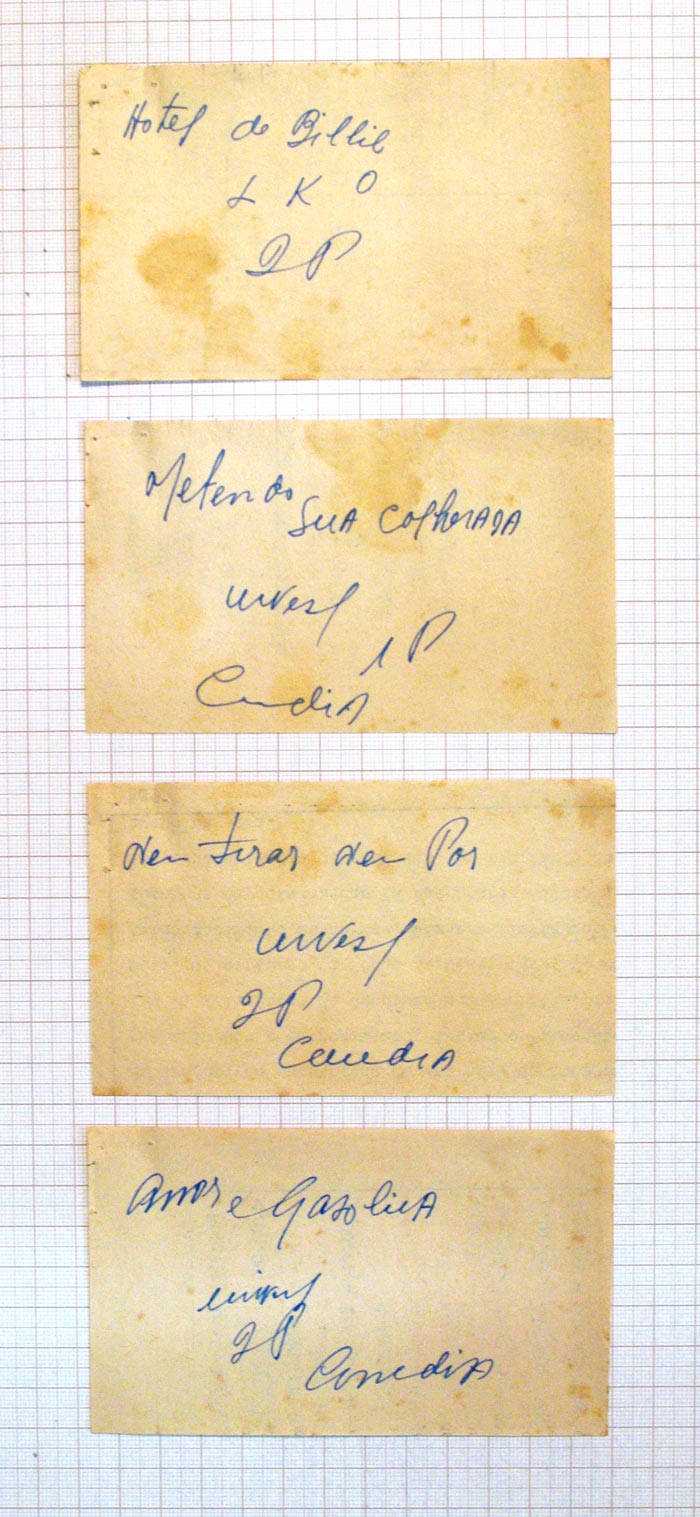 Hotel do Billie
L K O
2P
Metendo
SUA COLHERADA
univesl
1 P
Comedia
Nem tirar Nem Por
univesl
2P
Comedia
Amor e Gazolina
univesl
2P
Comedia